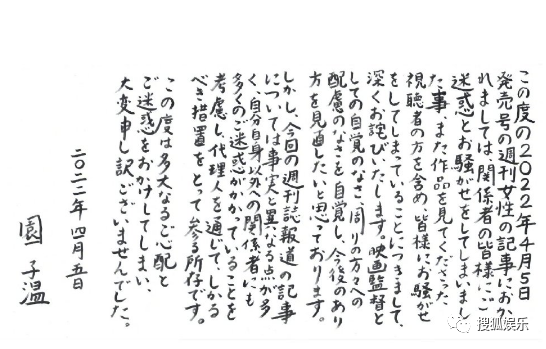 この度の2022年4月5日
発売号の週刊女性の記事におか
れましては、関係者の皆様にご
迷惑とお騒がせをしてしまいまし
た事、また作品を見てくださった
視聴者の方を含め、皆様にお騒がせ
をしてしまっていることにつきまして、
深くお詫びいたします。映画監督と
しての自覚のなさ、周りの方々への
配慮のなさを自覚し、今後のあり
方を見直したいと思っております。
しかし、今回の週刊誌報道の記事
については事実と異なる点が多
く、自分自身以外への関係者にも
多くのご迷惑がかかっていることを
考慮し、代理人を通じて、しかる
べき措置をとって参る所存です。
この度は多大なるご心配と
ご迷惑をおかけしてしまい、
大変申し訳ございませんでした。
二〇二二年 四月五日
園 子温
搜狐娱乐